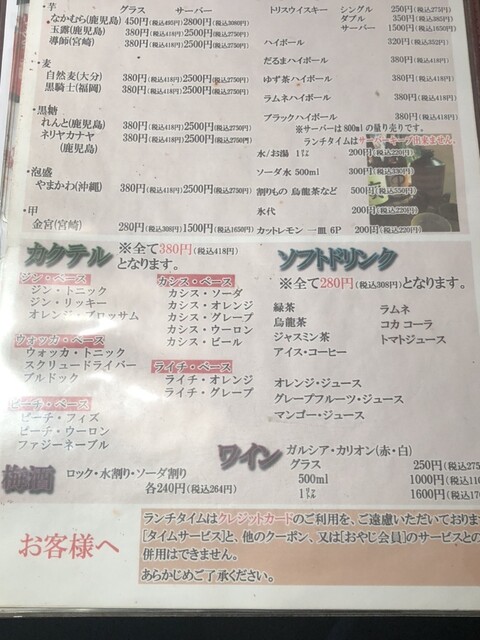 ・芋 グラス サーバー
なかむら(鹿児島) 450円(税込495円) 2800円(税込3080円)
玉露(鹿児島) 380円(税込418円) 2500円(税込2750円)
導師(宮崎) 380円(税込418円) 2500円(税込2750円)
・麦
自然麦(大分) 380円(税込418円) 2500円(税込2750円)
黒騎士(福岡) 380円(税込418円) 2500円(税込2750円)
・黒糖
れんと(鹿児島) 380円(税込418円) 2500円(税込2750円)
ネリヤカナヤ 380円(税込418円) 2500円(税込2750円)
(鹿児島)
・泡盛
やまかわ(沖縄) 380円(税込418円) 2500円(税込2750円)
・甲
金宮(宮崎) 280円(税込308円) 1500円(税込1650円)
トリスウイスキー シングル 250円(税込275円)
ダブル 350円(税込385円)
サーバー 1500円(税込1650円)
ハイボール 320円(税込352円)
だるまハイボール 380円(税込418円)
ゆず茶ハイボール 380円(税込418円)
ラムネハイボール 380円(税込418円)
ブラックハイボール 380円(税込418円)
※サーバーは800mlの量り売りです。
ランチタイムは
水/お湯 1㍑ 200円(税込220円)
ソーダ水 500ml 300円(税込330円)
割りもの 烏龍茶など 500円(税込550円)
氷代 200円(税込220円)
カットレモン 一皿 6P 200円(税込220円)
カクテル ※全て380円(税込418円)
となります。
ジン・ベース
ジン・トニック
ジン・リッキー
オレンジ・ブロッサム
ウォッカ・ベース
ウォッカ・トニック
スクリュードライバー
ブルドック
ピーチ・ベース
ピーチ・フィズ
ピーチ・ウーロン
ファジーネーブル
カシス・ベース
カシス・ソーダ
カシス・オレンジ
カシス・グレープ
カシス・ウーロン
カシス・ビール
ライチ・ベース
ライチ・オレンジ
ライチ・グレープ
ソフトドリンク
※全て280円(税込308円)となります。
緑茶
烏龍茶
ジャスミン茶
アイス・コーヒー
ラムネ
コカ コーラ
トマトジュース
オレンジ・ジュース
グレープフルーツ・ジュース
マンゴー・ジュース
梅酒 ロック・水割り・ソーダ割り
各240円(税込264円)
ワイン ガルシア・カリオン(赤・白)
グラス 250円(税込275
500ml 1000円(税込11
1㍑ 1600円(税込17
お客様へ
ランチタイムはクレジットカードのご利用を、ご遠慮いただいておりま
[タイムサービス]と、他のクーポン、又は[おやじ会員]のサービスとの
併用はできません。
あらかじめご了承ください。